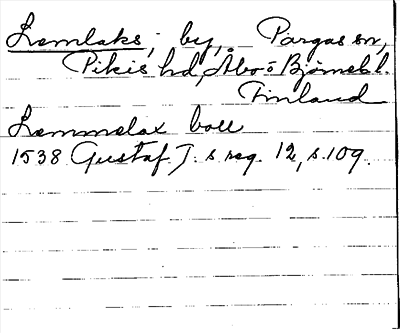 Lemlaks, by, Pargas sn,
Pikis hd, Åbo o Björneb l.
Finland
Lemmelax boll
1538 Gustaf I:s reg. 12, s. 109.